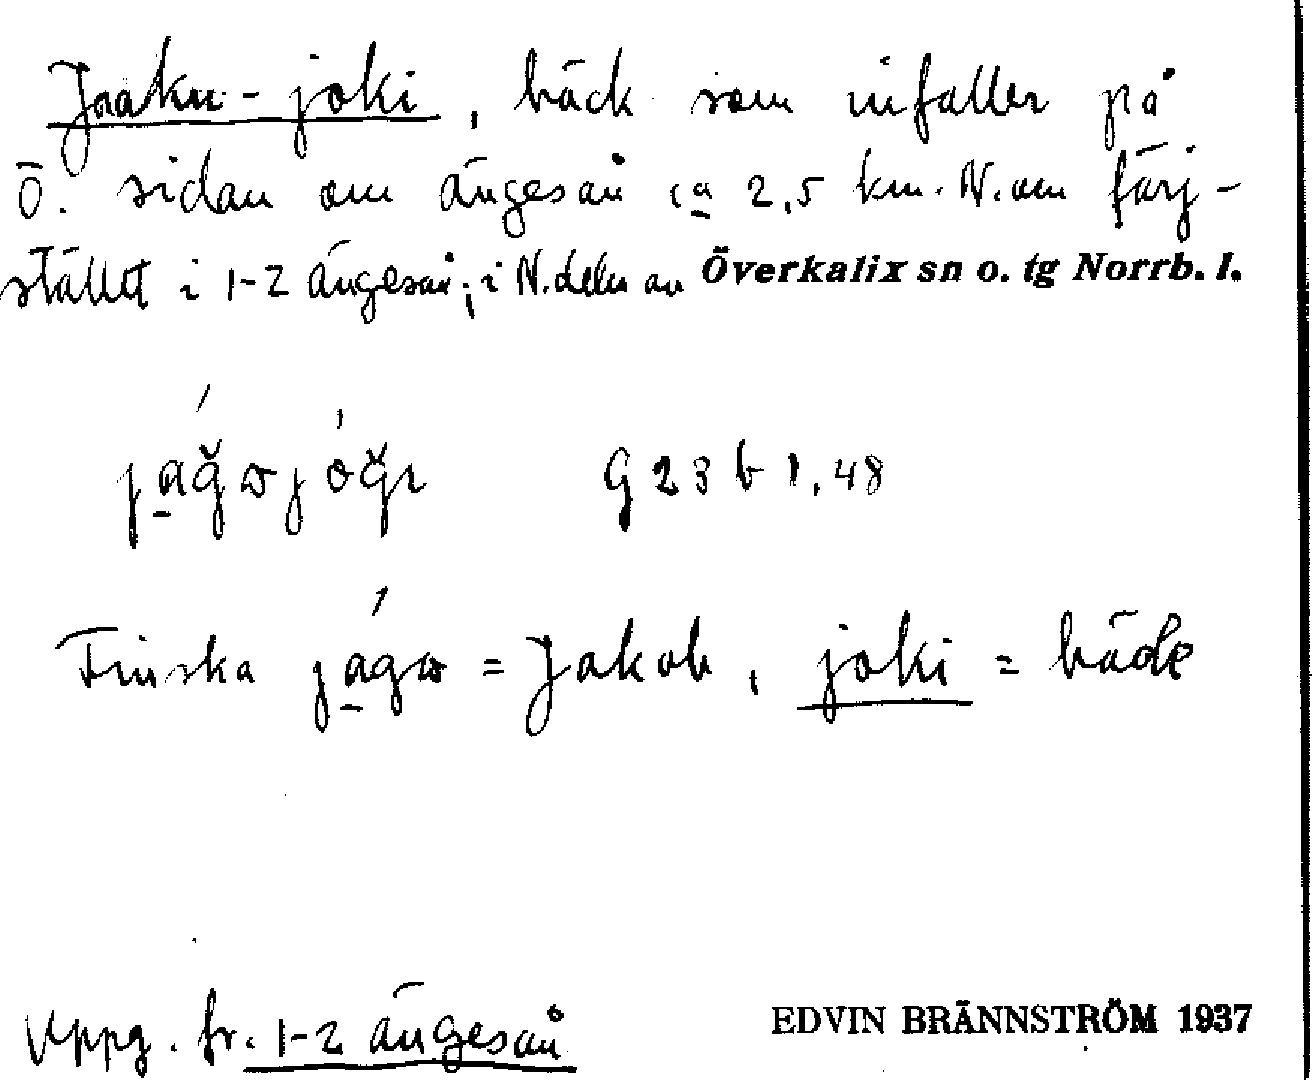 Jaaku-joki, bäck som infaller på
Ö. sidan om ängesån ca 2,5 km. N. om färj-
stället i 1-2 ängesån, i N. delen av Överkalix sn o. tg Norrb. l.
G 23 b 1, 48
Finska = Jakob, joki = bäck
Uppg. fr. 1-2 ängesån
EDVIN BRÄNNSTRÖM 1937